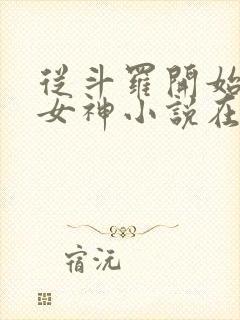 從斗羅開始
女神小說在
宿沅